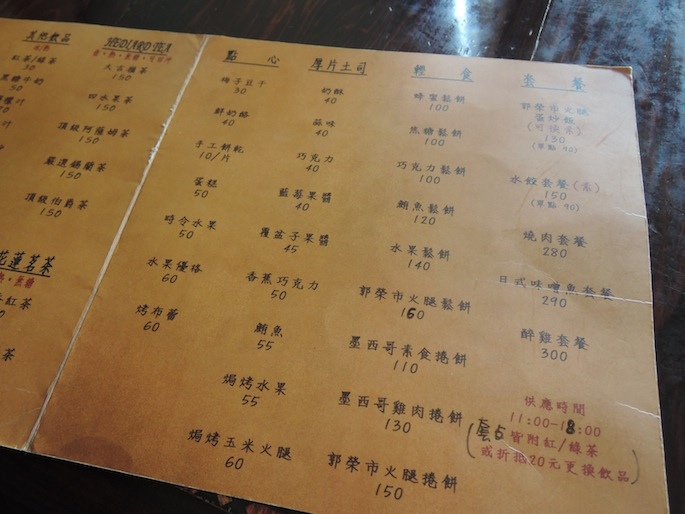 其他飲品
紅茶/綠茶
30
黑糖牛奶
50
50
花蓮茗茶
紅茶
茶
MEDIARD TEA
大吉嶺茶
150
四水果茶
150
頂級阿薩姆茶
150
嚴選錫蘭茶
150
頂級伯爵茶
150
點心
梅子豆干
30
鮮奶酪
40
手工餅乾
10/片
蛋糕
50
時令水果
50
水果優格
60
烤布蕾
60
厚片土司
奶酥
40
蒜味
40
巧克力
40
藍莓果醬
40
覆盆子果醬
45
香蕉巧克力
50
鮪魚
55
焗烤水果
55
焗烤玉米火腿
60
輕食
蜂蜜鬆餅
100
焦糖鬆餅
100
巧克力鬆餅
100
鮪魚鬆餅
120
水果鬆餅
140
郭榮市火腿鬆餅
160
墨西哥素食捲餅
110
墨西哥雞肉捲餅
130
郭榮市火腿捲餅
150
套餐
郭榮市火腿
蛋炒飯
(可換素)
130
(單點 90)
水餃套餐(素)
150
(單點 90)
燒肉套餐
280
日式味噌魚套餐
290
醉雞套餐
300
供應時間
11:00-18:00
(套占皆附紅/綠茶
或折抵20元更換飲品)